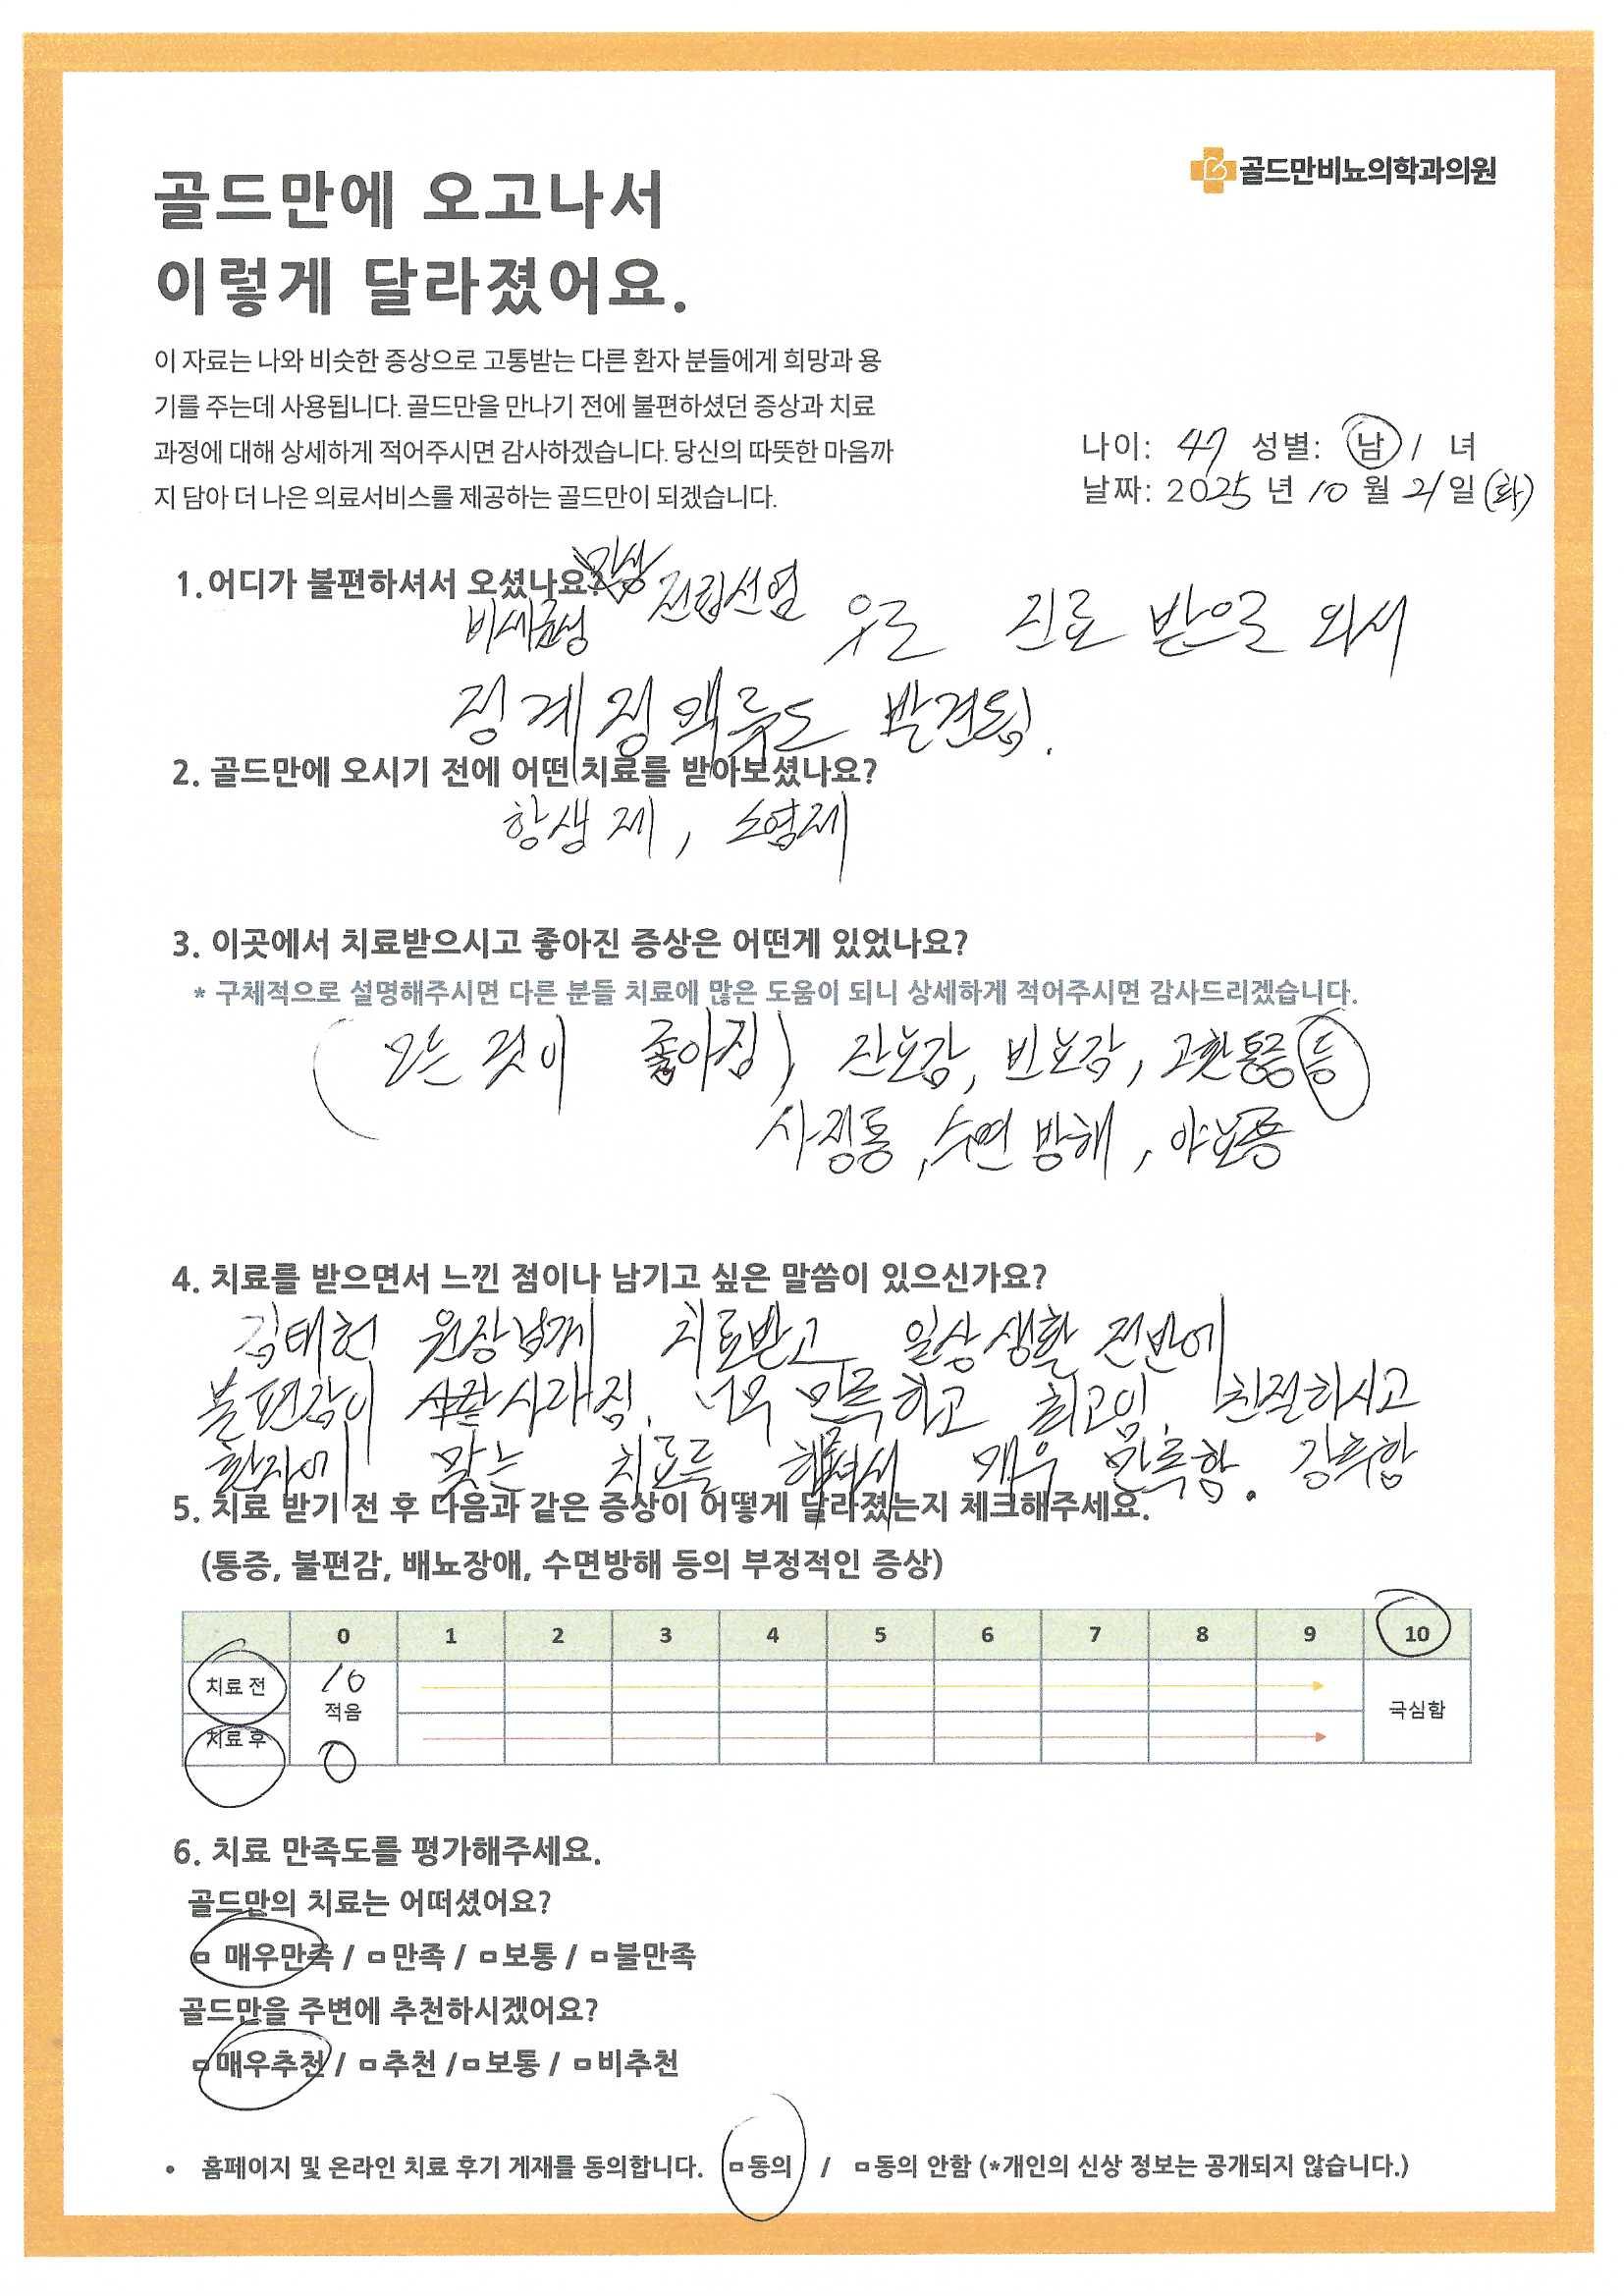 골드만비뇨의학과의원
골드만에 오고나서
이렇게 달라졌어요.
이 자료는 나와 비슷한 증상으로 고통받는 다른 환자 분들에게 희망과 용
기를 주는데 사용됩니다. 골드만을 만나기 전에 불편하셨던 증상과 치료
과정에 대해 상세하게 적어주시면 감사하겠습니다. 당신의 따뜻한 마음까
지 담아 더 나은 의료서비스를 제공하는 골드만이 되겠습니다.
나이: 47 성별: 남 / 녀
날짜: 2025 년 10 월 21 일 (화)
1.어디가 불편하셔서 오셨나요?
만성
비세균성 전립선염 우로 진료 받으러 와서
정계정맥류도 발견됨.
2. 골드만에 오시기 전에 어떤 치료를 받아보셨나요?
항생제, 소염제
3. 이곳에서 치료받으시고 좋아진 증상은 어떤게 있었나요?
* 구체적으로 설명해주시면 다른 분들 치료에 많은 도움이 되니 상세하게 적어주시면 감사드리겠습니다.
(모든 것이 좋아짐) 잔뇨감, 빈뇨감, 고환통증 등
사정통, 수면 방해, 야뇨등
4. 치료를 받으면서 느낀 점이나 남기고 싶은 말씀이 있으신가요?
김태헌 원장님께 치료받고 일상생활 전반에
불편감이 사라짐. 너무 만족하고 최고임. 친절하시고
환자에 맞는 치료를 해주셔서 매우 만족함. 강추함
5. 치료 받기 전 후 다음과 같은 증상이 어떻게 달라졌는지 체크해주세요.
(통증, 불편감, 배뇨장애, 수면방해 등의 부정적인 증상)
0 1 2 3 4 5 6 7 8 9 10
치료 전 10
적음 극심함
치료 후 0
6. 치료 만족도를 평가해주세요.
골드만의 치료는 어떠셨어요?
매우만족 / 만족 / 보통 / 불만족
골드만을 주변에 추천하시겠어요?
매우추천 / 추천 / 보통 / 비추천
• 홈페이지 및 온라인 치료 후기 게재를 동의합니다. 동의 / 동의 안함 (*개인의 신상 정보는 공개되지 않습니다.)